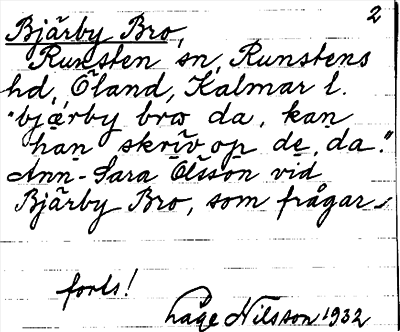 2
Bjärby Bro,
Runsten sn, Runstens
hd, Öland, Kalmar l.
"bjærby bro da, kan
han skrīv op de, da."
Ann-Sara Olsson vid
Bjärby Bro, som frågar
forts!
Låge Nilsson 1932